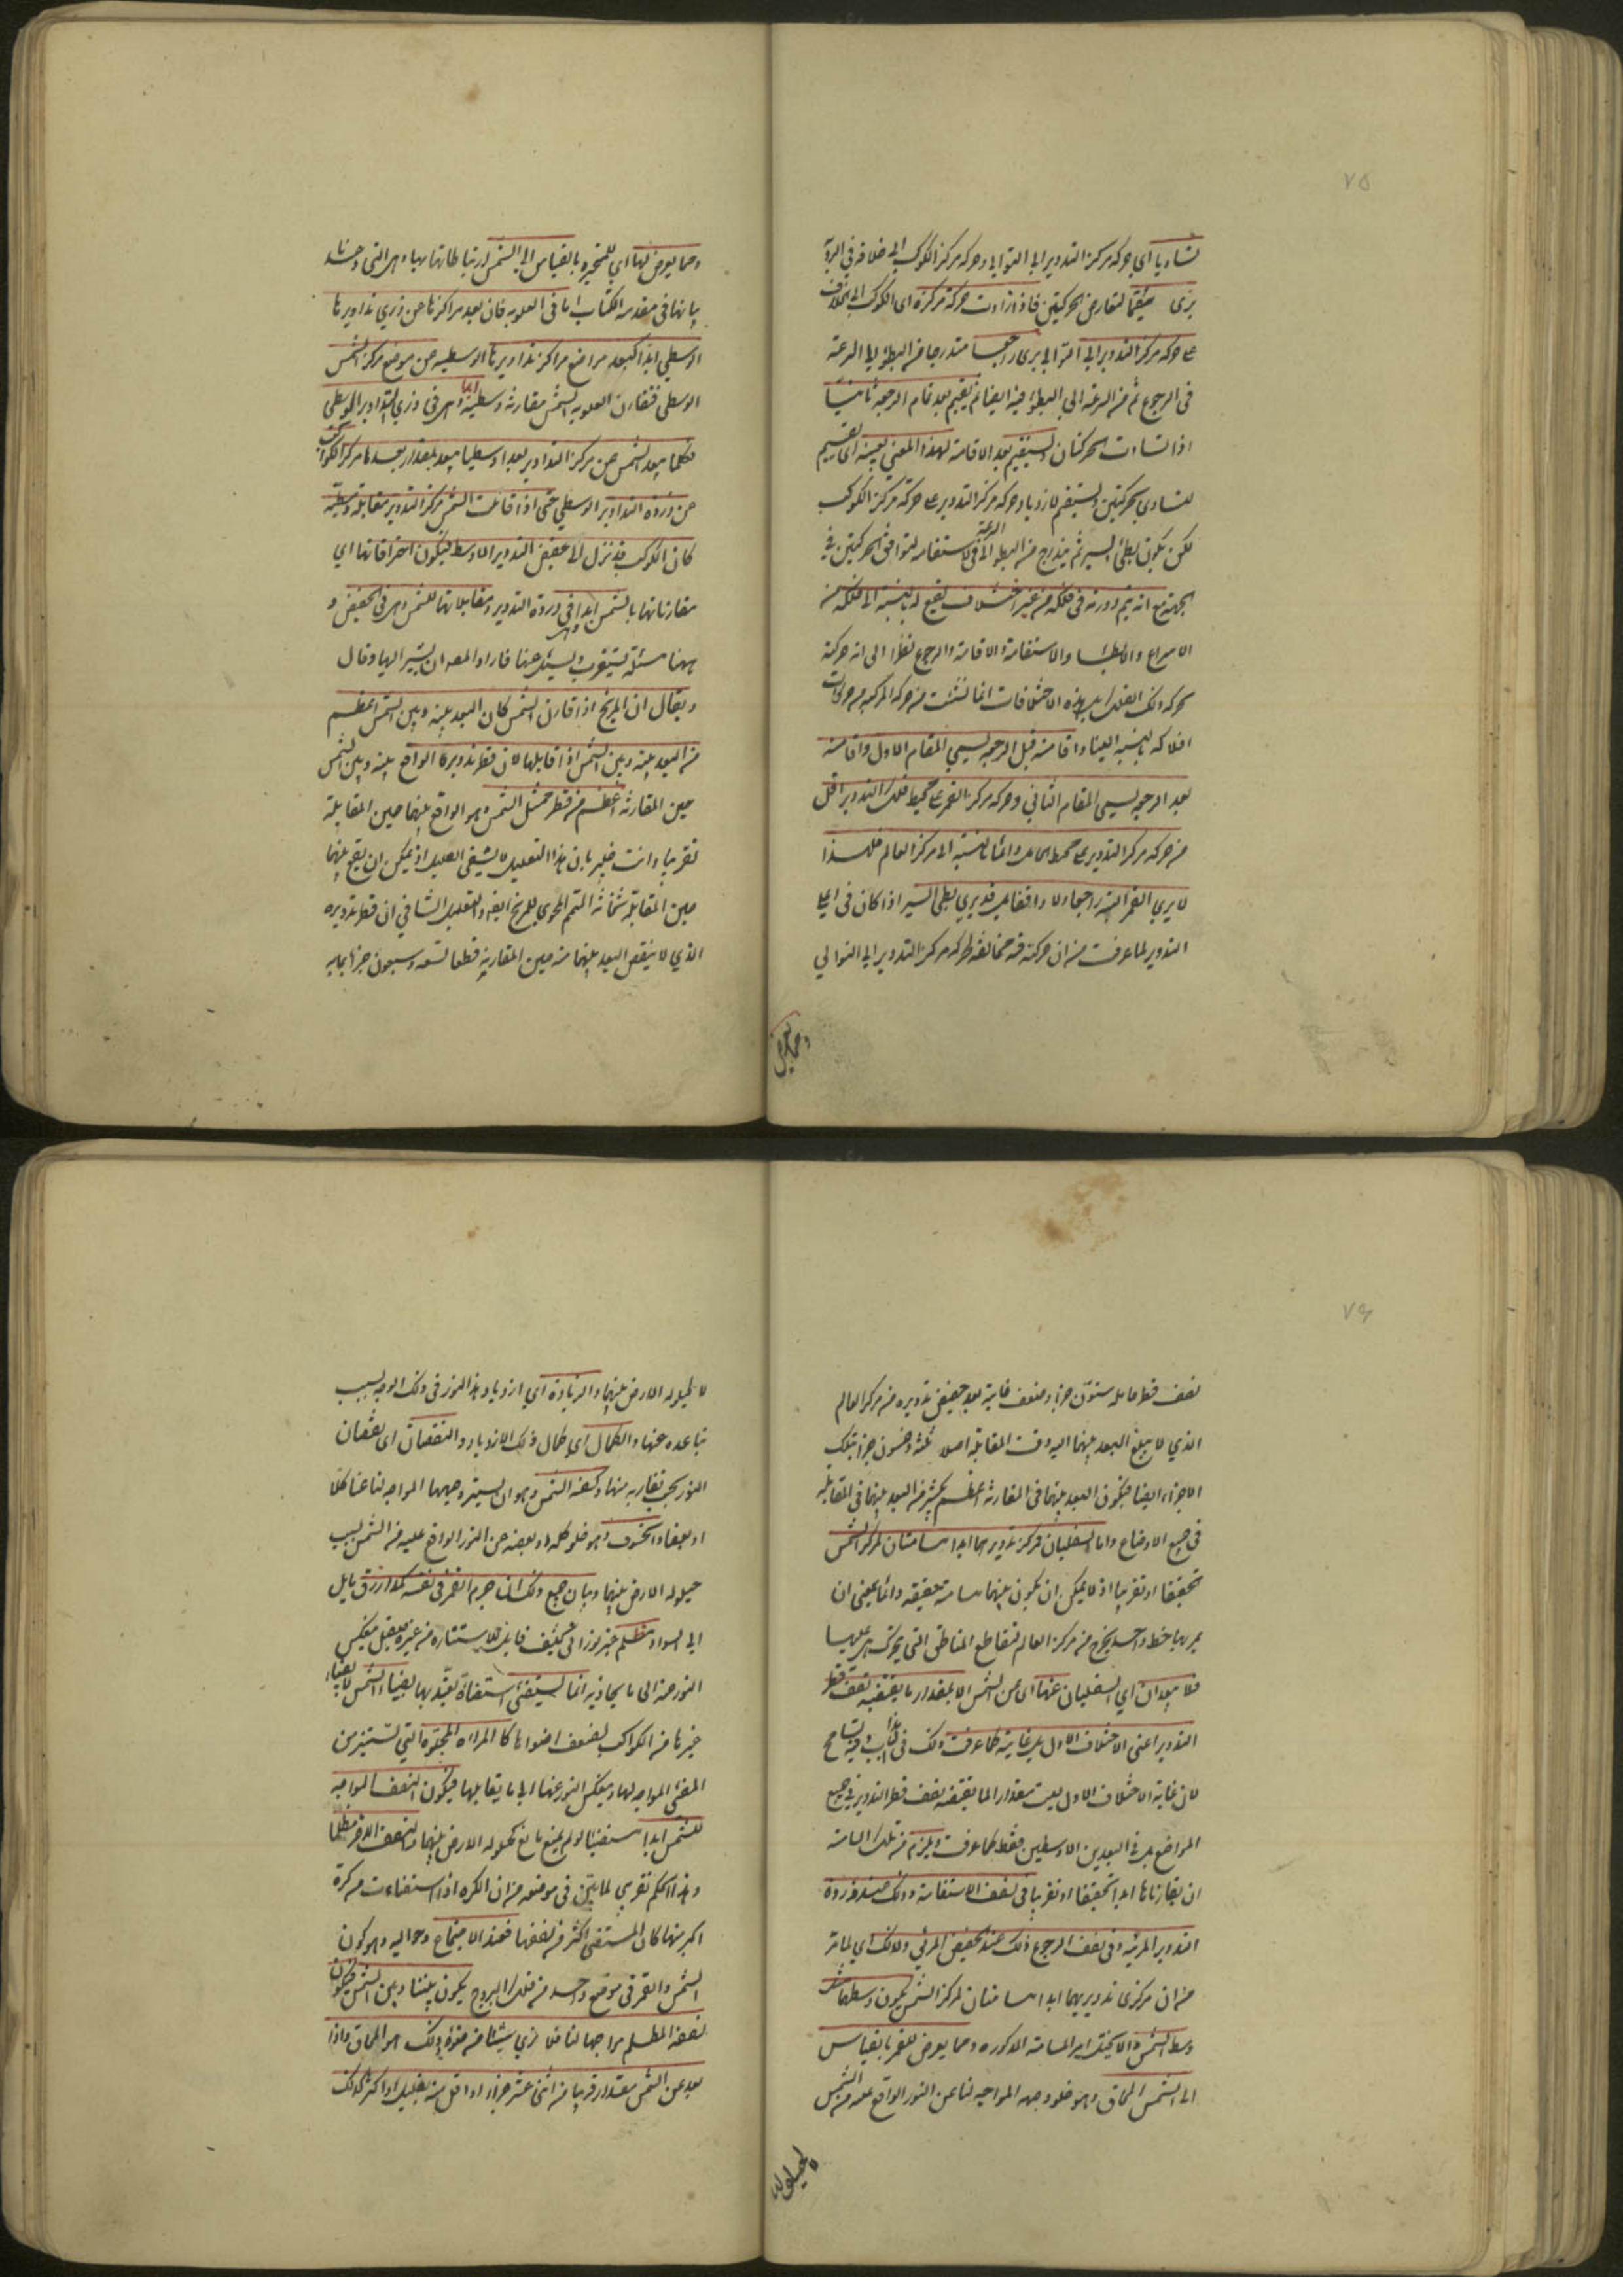 ٧٥
تساويا اي حركة مركز التدوير الى التوالي وحركة مركز الكوكب الى خلافه في الرؤية
يرى مقيما لتعارض الحركتين فاذا زادت حركة مركزه اى الكوكب الى الخلاف
على حركة مركز التدوير الى التوالي يرى راجعا متدرجا من البطؤ الى السرعة
فى الرجوع ثم من السرعة الى البطؤ فيه ايضا ثم يقيم بعد تمام الرجعة ثانيا
اذا تساوت الحركتان ويستقيم بعد الاقامة لهذا المعنى بعينه اى يقيم
لتساوى الحركتين ويستقيم لازدياد حركة مركز التدوير على حركة مركز الكوكب
لكن يكون بطئ السير ثم يتدرج من البطؤ الى السرعة فى الاستقامة لتوافق الحركتين في
الجهة مع انه يتم دورته فى فلكه من غير اختلاف يقع له بالنسبة الى فلكه من
الاسراع والابطاء والاستقامة والاقامة والرجوع نظرا الى انه حركة
بحركة ذلك الفلك بل هذه الاختلافات انما نشئت من حركة المركبة من حركات
افلاكه بالنسبة الينا واقامته قبل الرجعة يسمى المقام الاول واقامته
بعد الرجوع يسمى المقام الثاني وحركة مركز القمر على محيط فلك التدوير اقل
من حركة مركز التدوير على محيط الحامل دائما بالنسبة الى مركز العالم فلهذا
لا يرى القمر البتة راجعا ولا واقفا بل قد يرى بطئ السير اذا كان فى اعلى
التدوير لما عرفت من ان حركته فيه مخالفة لحركة مركز التدوير الى التوالي
ومما يعرض
ومما يعرض لها اي للمتحيرة بالقياس الى الشمس ارتباطاتها بها وهى التى وعدنا
بيانها فى مقدمة الكتاب اما فى العلوية فان بعد مراكزها عن ذرى تداويرها
الوسطى ابدا كبعد مواضع مراكز تداويرها الوسطية عن موضع مركز الشمس
الوسطى فتقارن العلوية الشمس مقارنة وسطية ابدا وهى فى ذرى التداوير الوسطى
فكلما يبعد الشمس عن مركز التداوير بعدا وسطيا يبعد بمقدار بعدها مركز الكواكب
عن ذروة التداوير الوسطى حتى اذا قابلت الشمس مركز التدوير مقابلة وسطية
كان الكوكب قد نزل الى حضيض التدوير الاوسط فيكون احتراقاتها اي
مقارناتها بالشمس ابدا فى ذروة التدوير ومقابلاتها للشمس وهى فى الحضيض و
ههنا مسئلة يستغرب ويسئل عنها فاراد المص ان يشير اليها وقال
ويقال ان المريخ اذا قارن الشمس كان البعد بينه وبين الشمس اعظم
من البعد بينه وبين الشمس اذا قابلها لان قطر تدويره الواقع بينه وبين الشمس
حين المقارنة اعظم من قطر ممثل الشمس وهو الواقع بينهما حين المقابلة
تقريبا وانت خبير بان هذا التعليل لا يشفى العليل اذ يمكن ان يقع بينهما
حين المقابلة ثخانة المتمم المحوى للمريخ ايضا والتعليل الشافي ان قطر تدويره
الذي لا ينقص البعد بينهما منه حين المقارنة قطعا تسعة وسبعون جزأ بما به
٧٦
نصف قطر حامله ستون جزأ وضعف غاية بعد حضيض تدويره من مركز العالم
الذي لا يبلغ البعد بينهما اليه وقت المقابلة اصلا ثلثة وخمسون جزأ بتلك
الاجزاء ايضا فيكون البعد بينهما فى المقارنة اعظم بكثير من البعد بينهما فى المقابلة
فى جميع الاوضاع واما السفليان فمركز تدويرهما ابدا مسامتان لمركز الشمس
تحقيقا او تقريبا اذ لا يمكن ان يكون بينهما مسامتة حقيقة دائما بمعنى ان
يمر بها خط واحد يخرج من مركز العالم لتقاطع المناطق التى يتحرك هى عليها
فلا يبعدان اي السفليان عنها اى عن الشمس الا بمقدار ما يقتضيه نصف قطر
التدوير اعنى الاختلاف الاول بل غايته كما عرفت ذلك فى هذا الباب وفيه تسامح
لان غاية الاختلاف الاول ليست مقدار الما يقتضيه نصف قطر التدوير في جميع
المواضع بل فى البعدين الاوسطين فقط كما عرفت ويلزم من تلك المسامتة
ان يقارناها ابدا تحقيقا او تقريبا فى نصف الاستقامة وذلك عند ذروة
التدوير المرئية وفى نصف الرجوع ذلك عند الحضيض المرئي ولذلك اي لما مر
من ان مركزى تدويريهما ابدا مسامتان لمركز الشمس يكون وسطهما مثل
وسط الشمس والا يختل امر المسامتة المذكورة ومما يعرض للقمر بالقياس
الى الشمس المحاق وهو خلو وجهه المواجه لنا عن النور الواقع عليه من الشمس
لا لحيلولة
لا لحيلولة الارض بينهما والزيادة اي ازدياد هذا النور فى ذلك الوجه بسبب
تباعده عنها والكمال اي كمال ذلك الازدياد والنقصان اى نقصان
النور بحسب تقاربه منها وكسفه الشمس وهو ان يستر وجهها المواجه لنا عنا كلا
او بعضا والخسوف وهو خلو كله او بعضه عن النور الواقع عليه من الشمس بسبب
حيلولة الارض بينهما وبيان جميع ذلك ان جرم القمر فى نفسه كمد ازرق مايل
الى السواد مظلم غير نورانى كثيف قابل للاستنارة من غيره صقيل ينعكس
النور عنه الى ما يحاذيه انما يستضئ استضاءة يعتد بها بضياء الشمس لا بضياء
غيرها من الكواكب لضعف اضوائها كالمرآة المجلوة التي تستنير من
المضئ المواجه لها وينعكس النور عنها الى ما يقابلها فيكون النصف المواجه
للشمس ابدا مستضيئا لو لم يمنع مانع كحيلولة الارض بينهما والنصف الآخر مظلما
وهذا الحكم تقريبي لما تبين فى موضعه من ان الكرة اذا استضاءت من كرة
اكبر منها كان المستضئ اكثر من نصفها فعند الاجتماع وحواليه وهو كون
الشمس والقمر فى موضع واحد من فلك البروج يكون بيننا وبين الشمس فيكون
نصفه المظلم مواجها لنا فلا نرى شيئا من ضوئه وذلك هو المحاق واذا
بعد عن الشمس مقدارا قريبا من اثنى عشر جزأ او اقل منه بقليل او اكثر كذلك